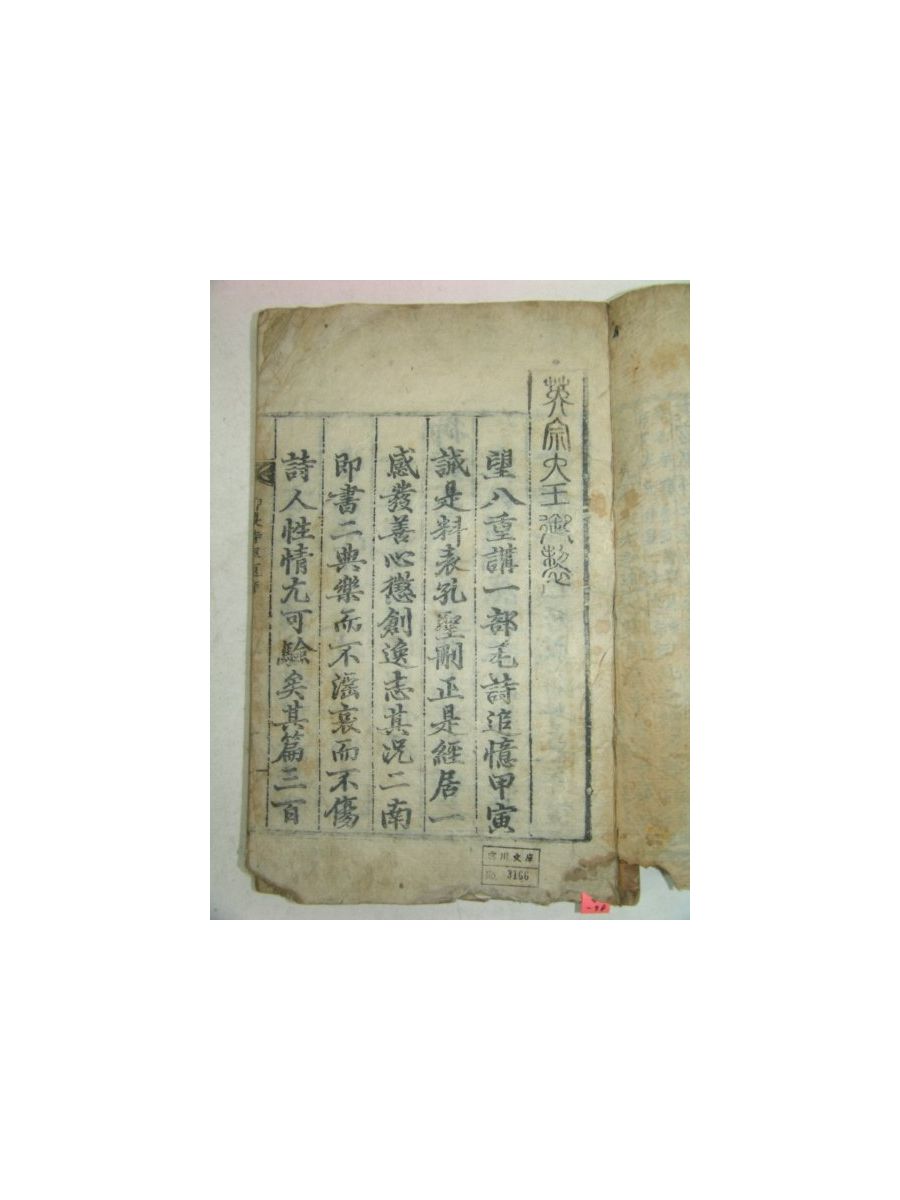 英宗大王御製
望八重講一部毛詩追憶甲寅
誠是料表孔聖刪正是經居一
感發善心懲創逸志其況二南
即書二典樂而不淫哀而不傷
詩人性情尤可驗矣其篇三百
川文庫
No. 3166